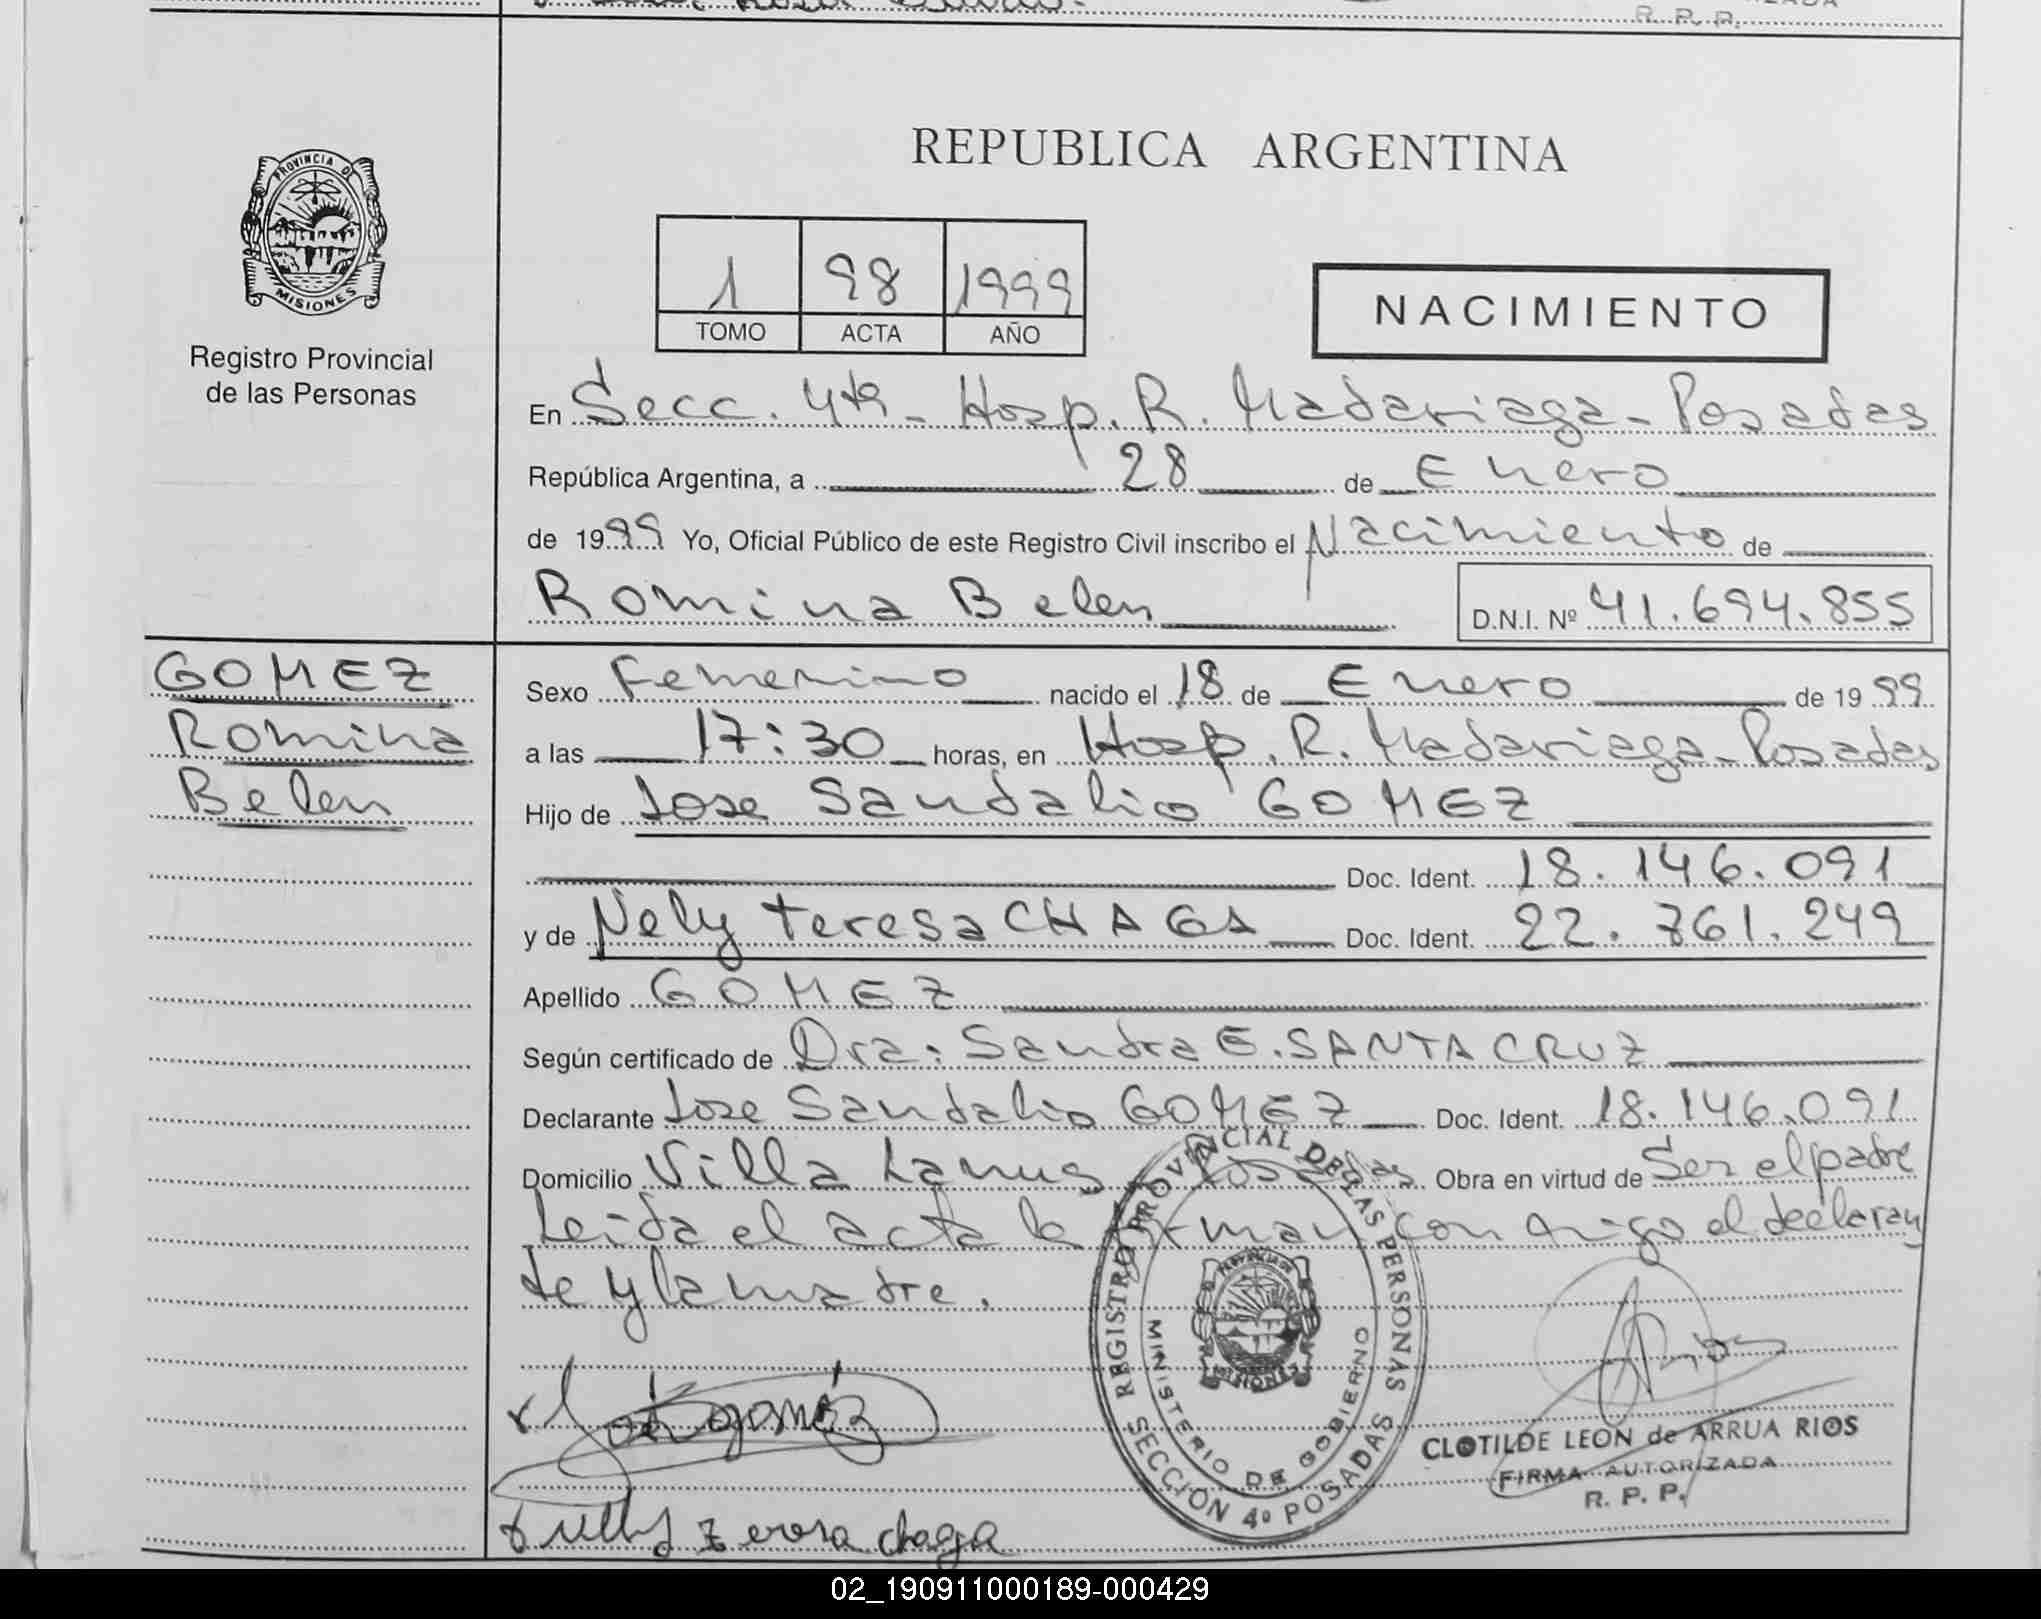 R. P. R.
PROVINCIA D
MISIONES
Registro Provincial
de las Personas
REPUBLICA ARGENTINA
1 98 1999
TOMO ACTA AÑO
NACIMIENTO
En Secc. 4ta - Hosp. R. Madariaga - Posadas
República Argentina, a 28 de Enero
de 1999 Yo, Oficial Público de este Registro Civil inscribo el Nacimiento de
Romina Belen D.N.I. Nº 41.694.855
GOMEZ
Romina
Belen
Sexo Femenino nacido el 18 de Enero de 1999
a las 17:30 horas, en Hosp. R. Madariaga - Posadas
Hijo de Jose Sandalio GOMEZ
Doc. Ident. 18.146.091
y de Nely Teresa CHAGA Doc. Ident. 22.761.249
Apellido GOMEZ
Según certificado de Dra: Sandra E. SANTA CRUZ
Declarante Jose Sandalio GOMEZ Doc. Ident. 18.146.091
Domicilio Villa Lanus Posadas Obra en virtud de Ser el padre
Leida el acta la firman conmigo el declaran
te y la madre.
REGISTRO PROVINCIAL DE LAS PERSONAS
MINISTERIO DE GOBIERNO
MISIONES
SECCIÓN 4º POSADAS
José gomez
CLOTILDE LEON de ARRUA RIOS
FIRMA AUTORIZADA
R. P. P.
chaga
02_190911000189-000429